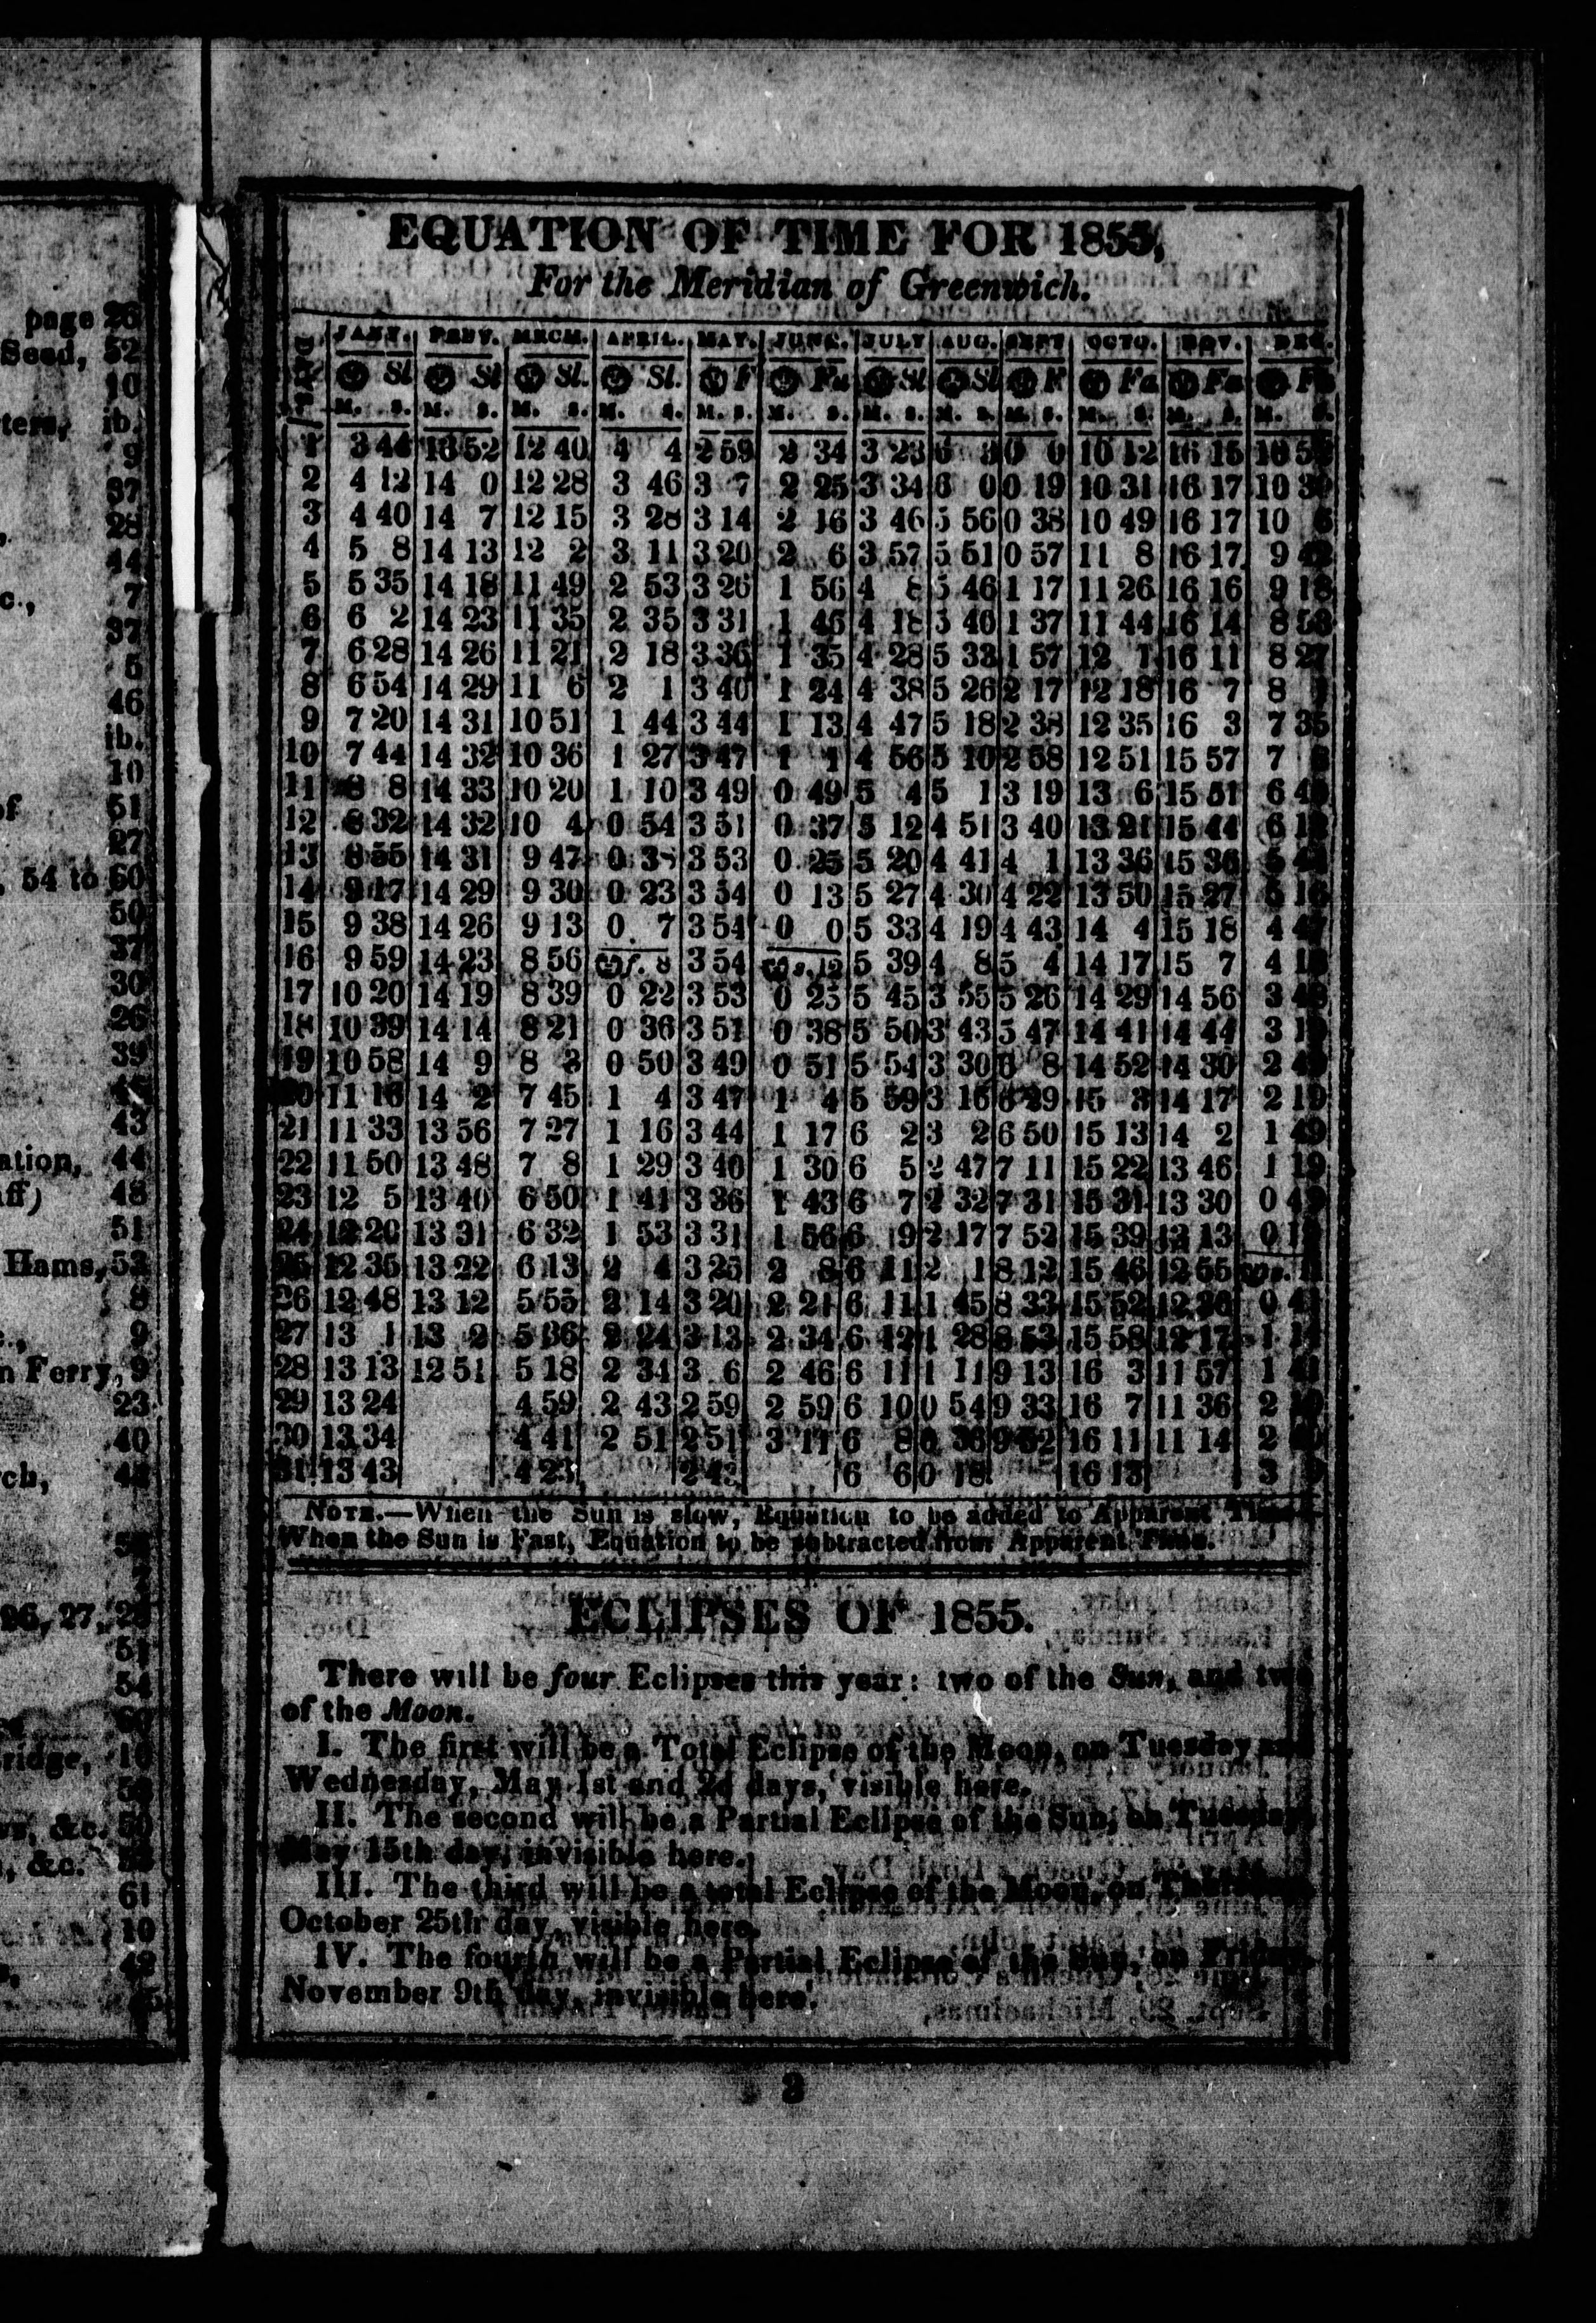 page 26
Seed, 52
10
ters, ib.
9
37
28
44
c., 7
37
5
46
ib.
10
of 51
27
, 54 to 60
50
37
30
26
39
43
ation, 44
aff) 48
51
Hams, 53
8
9
n Ferry, 9
23
40
rch, 48
26, 27, 28
51
54
60
ridge, 10
ws, &c. 50
, &c.
61
10
42
EQUATION OF TIME FOR 1855,
For the Meridian of Greenwich.
DAYS JANY. FEBY. MECH. APRIL. MAY. JUNE. JULY AUG. SEPT OCTO. NOV. DEC.
Sl Sl Sl. Sl. F Fa Sl Sl F Fa Fa Fa
M. S. M. S. M. S. M. S. M. S. M. S. M. S. M. S. M. S. M. S. M. S. M. S.
1 3 44 13 52 12 40 4 4 2 59 2 34 3 23 6 3 0 0 10 12 16 15 10
2 4 12 14 0 12 28 3 46 3 7 2 25 3 34 6 0 0 19 10 31 16 17 10 30
3 4 40 14 7 12 15 3 28 3 14 2 16 3 46 5 56 0 38 10 49 16 17 10 6
4 5 8 14 13 12 2 3 11 3 20 2 6 3 57 5 51 0 57 11 8 16 17 9 42
5 5 35 14 18 11 49 2 53 3 26 1 56 4 8 5 46 1 17 11 26 16 16 9 18
6 6 2 14 23 11 35 2 35 3 31 1 46 4 18 5 40 1 37 11 44 16 14 8 53
7 6 28 14 26 11 21 2 18 3 36 1 35 4 28 5 33 1 57 12 1 16 11 8 27
8 6 54 14 29 11 6 2 1 3 40 1 24 4 38 5 26 2 17 12 18 16 7 8 1
9 7 20 14 31 10 51 1 44 3 44 1 13 4 47 5 18 2 38 12 35 16 3 7 35
10 7 44 14 32 10 36 1 27 3 47 1 1 4 56 5 10 2 58 12 51 15 57 7 8
11 8 8 14 33 10 20 1 10 3 49 0 49 5 4 5 1 3 19 13 6 15 51 6 40
12 8 32 14 32 10 4 0 54 3 51 0 37 5 12 4 51 3 40 13 21 15 44 6 12
13 8 55 14 31 9 47 0 38 3 53 0 25 5 20 4 41 4 1 13 36 15 36 5 44
14 9 17 14 29 9 30 0 23 3 54 0 13 5 27 4 30 4 22 13 50 15 27 5 16
15 9 38 14 26 9 13 0 7 3 54 0 0 5 33 4 19 4 43 14 4 15 18 4 47
16 9 59 14 23 8 56 f. 8 3 54 s. 12 5 39 4 8 5 4 14 17 15 7 4 18
17 10 20 14 19 8 39 0 22 3 53 0 25 5 45 3 55 5 26 14 29 14 56 3 48
18 10 39 14 14 8 21 0 36 3 51 0 38 5 50 3 43 5 47 14 41 14 44 3 19
19 10 58 14 9 8 3 0 50 3 49 0 51 5 54 3 30 6 8 14 52 14 30 2 49
20 11 16 14 2 7 45 1 4 3 47 1 4 5 59 3 16 6 29 15 3 14 17 2 19
21 11 33 13 56 7 27 1 16 3 44 1 17 6 2 3 2 6 50 15 13 14 2 1 49
22 11 50 13 48 7 8 1 29 3 40 1 30 6 5 2 47 7 11 15 22 13 46 1 19
23 12 5 13 40 6 50 1 41 3 36 1 43 6 7 2 32 7 31 15 31 13 30 0 49
24 12 20 13 31 6 32 1 53 3 31 1 56 6 9 2 17 7 52 15 39 13 13 0 19
25 12 35 13 22 6 13 2 4 3 25 2 8 6 11 2 1 8 12 15 46 12 55 s. 11
26 12 48 13 12 5 55 2 14 3 20 2 21 6 11 1 45 8 33 15 52 12 36 0 41
27 13 1 13 2 5 36 2 24 3 13 2 34 6 12 1 28 8 53 15 58 12 17 1 11
28 13 13 12 51 5 18 2 34 3 6 2 46 6 11 1 11 9 13 16 3 11 57 1 41
29 13 24 4 59 2 43 2 59 2 59 6 10 0 54 9 33 16 7 11 36 2
30 13 34 4 41 2 51 2 51 3 11 6 8 0 36 9 52 16 11 11 14 2
31 13 43 4 23 2 43 6 6 0 18 16 13 3
NOTE.—When the Sun is slow, Equation to be added to Apparent Time
When the Sun is Fast, Equation to be subtracted from Apparent Time.
ECLIPSES OF 1855.
There will be four Eclipses this year: two of the Sun, and two
of the Moon.
I. The first will be a Total Eclipse of the Moon, on Tuesday and
Wednesday, May 1st and 2d days, visible here.
II. The second will be a Partial Eclipse of the Sun, on Tuesday,
May 15th day, invisible here.
III. The third will be a total Eclipse of the Moon, on Thursday,
October 25th day, visible here.
IV. The fourth will be a Partial Eclipse of the Sun, on Friday,
November 9th day, invisible here.
3